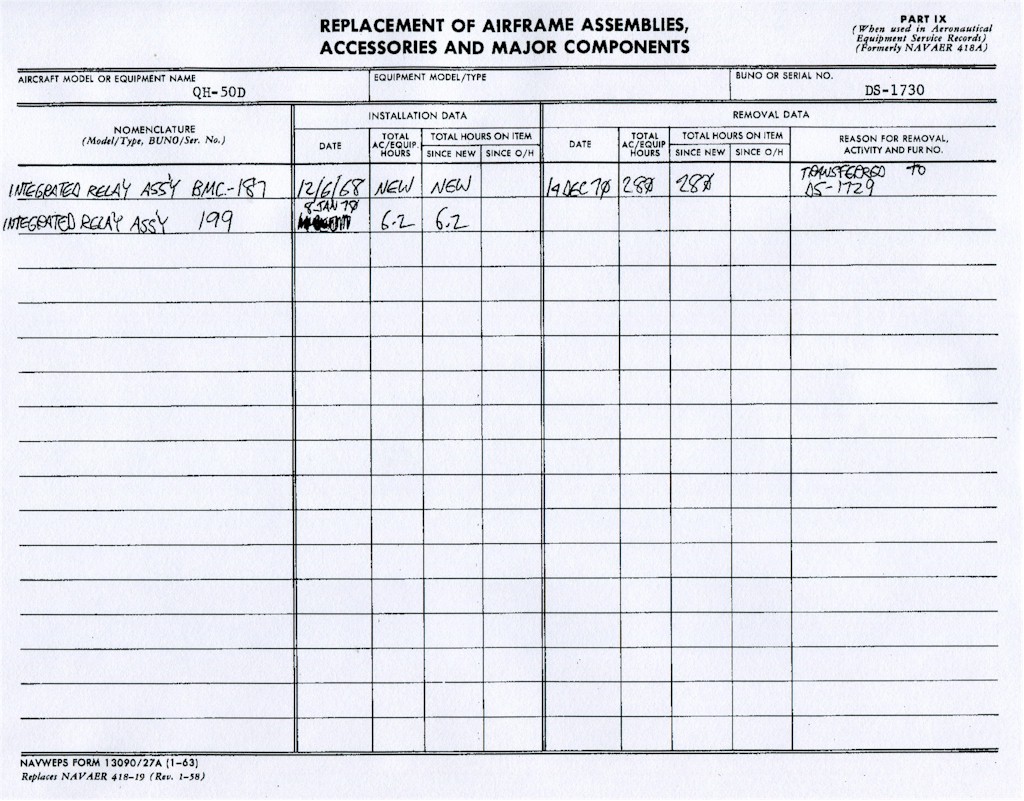 REPLACEMENT OF AIRFRAME ASSEMBLIES,
ACCESSORIES AND MAJOR COMPONENTS
PART IX
(When used in Aeronautical
Equipment Service Records)
(Formerly NAVAER 418A)
AIRCRAFT MODEL OR EQUIPMENT NAME
QH-50D
EQUIPMENT MODEL/TYPE
BUNO OR SERIAL NO.
DS-1730
NOMENCLATURE
(Model/Type, BUNO/Ser. No.)
INSTALLATION DATA
DATE
TOTAL
AC/EQUIP.
HOURS
TOTAL HOURS ON ITEM
SINCE NEW
SINCE O/H
REMOVAL DATA
DATE
TOTAL
AC/EQUIP
HOURS
TOTAL HOURS ON ITEM
SINCE NEW
SINCE O/H
REASON FOR REMOVAL,
ACTIVITY AND FUR NO.
INTEGRATED RELAY ASS'Y BMC-187 12/6/68 NEW NEW 14 DEC 70 280 280 TRANSFERRED TO
DS-1729
8 JAN 70
INTEGRATED RELAY ASS'Y 199 6.2 6.2
NAVWEPS FORM 13090/27A (1-63)
Replaces NAVAER 418-19 (Rev. 1-58)